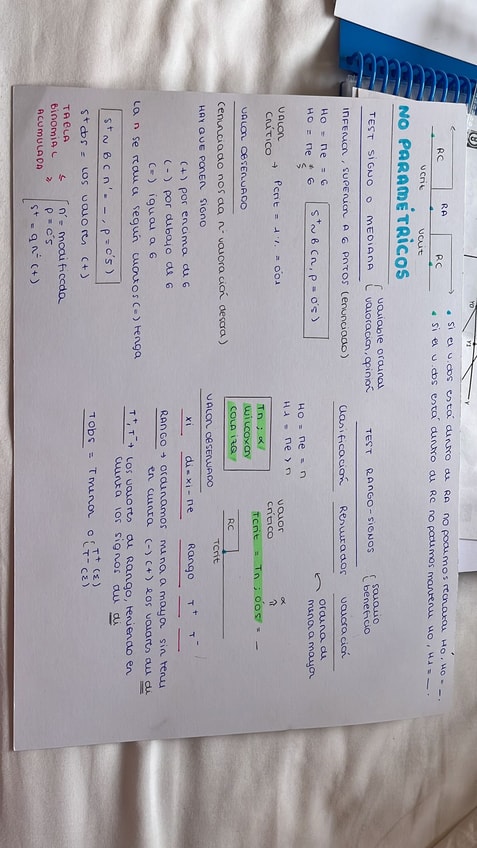 RC RA RC
Vcrit Vcrit
• Si el v.obs está dentro de RA no podemos rechazar H0, H0 = _.
• Si el v.obs está dentro de RC no podemos mantener H0, H1 = _.
NO PARAMÉTRICOS
TEST SIGNO O MEDIANA { variable ordinal
valoración, opinión
INFERIOR, SUPERIOR A 6 PNTOS (enunciado)
H0 = Me = 6
H0 = Me ≠ 6
S+ ~ B (n, p = 0'5)
VALOR CRÍTICO → Pcrit = 1% = 0'01
VALOR OBSERVADO
(enunciado nos da nº valoración
HAY QUE PONER SIGNO
(+) por encima de 6
(-) por debajo de 6
(=) igual a 6
La n se reduce según cuantos (=) tenga
S+ ~ B (n' = _, p = 0'5)
S+obs = los valores (+)
TABLA BINOMIAL ACUMULADA
n' = modificada
p = 0'5
S+ = q n' (+)
TEST RANGO-SIGNOS { salario
beneficio
Clasificación Resultados valoración
ordena de menor a mayor
H0 = Me = n
H1 = Me > n
Tn ; α
WILCOXON
COLA IZQ
valor crítico
α
Tcrit = Tn ; 0'05 = _
RC
Tcrit
VALOR OBSERVADO
xi di = xi - Me Rango T+ T-
Rango → ordenamos menor a mayor sin tener
en cuenta (-) (+) los valores del di
T+, T- → los valores de Rango, teniendo en
cuenta los signos del di
Tobs = T menor o { T+ (Σ)
T- (Σ)